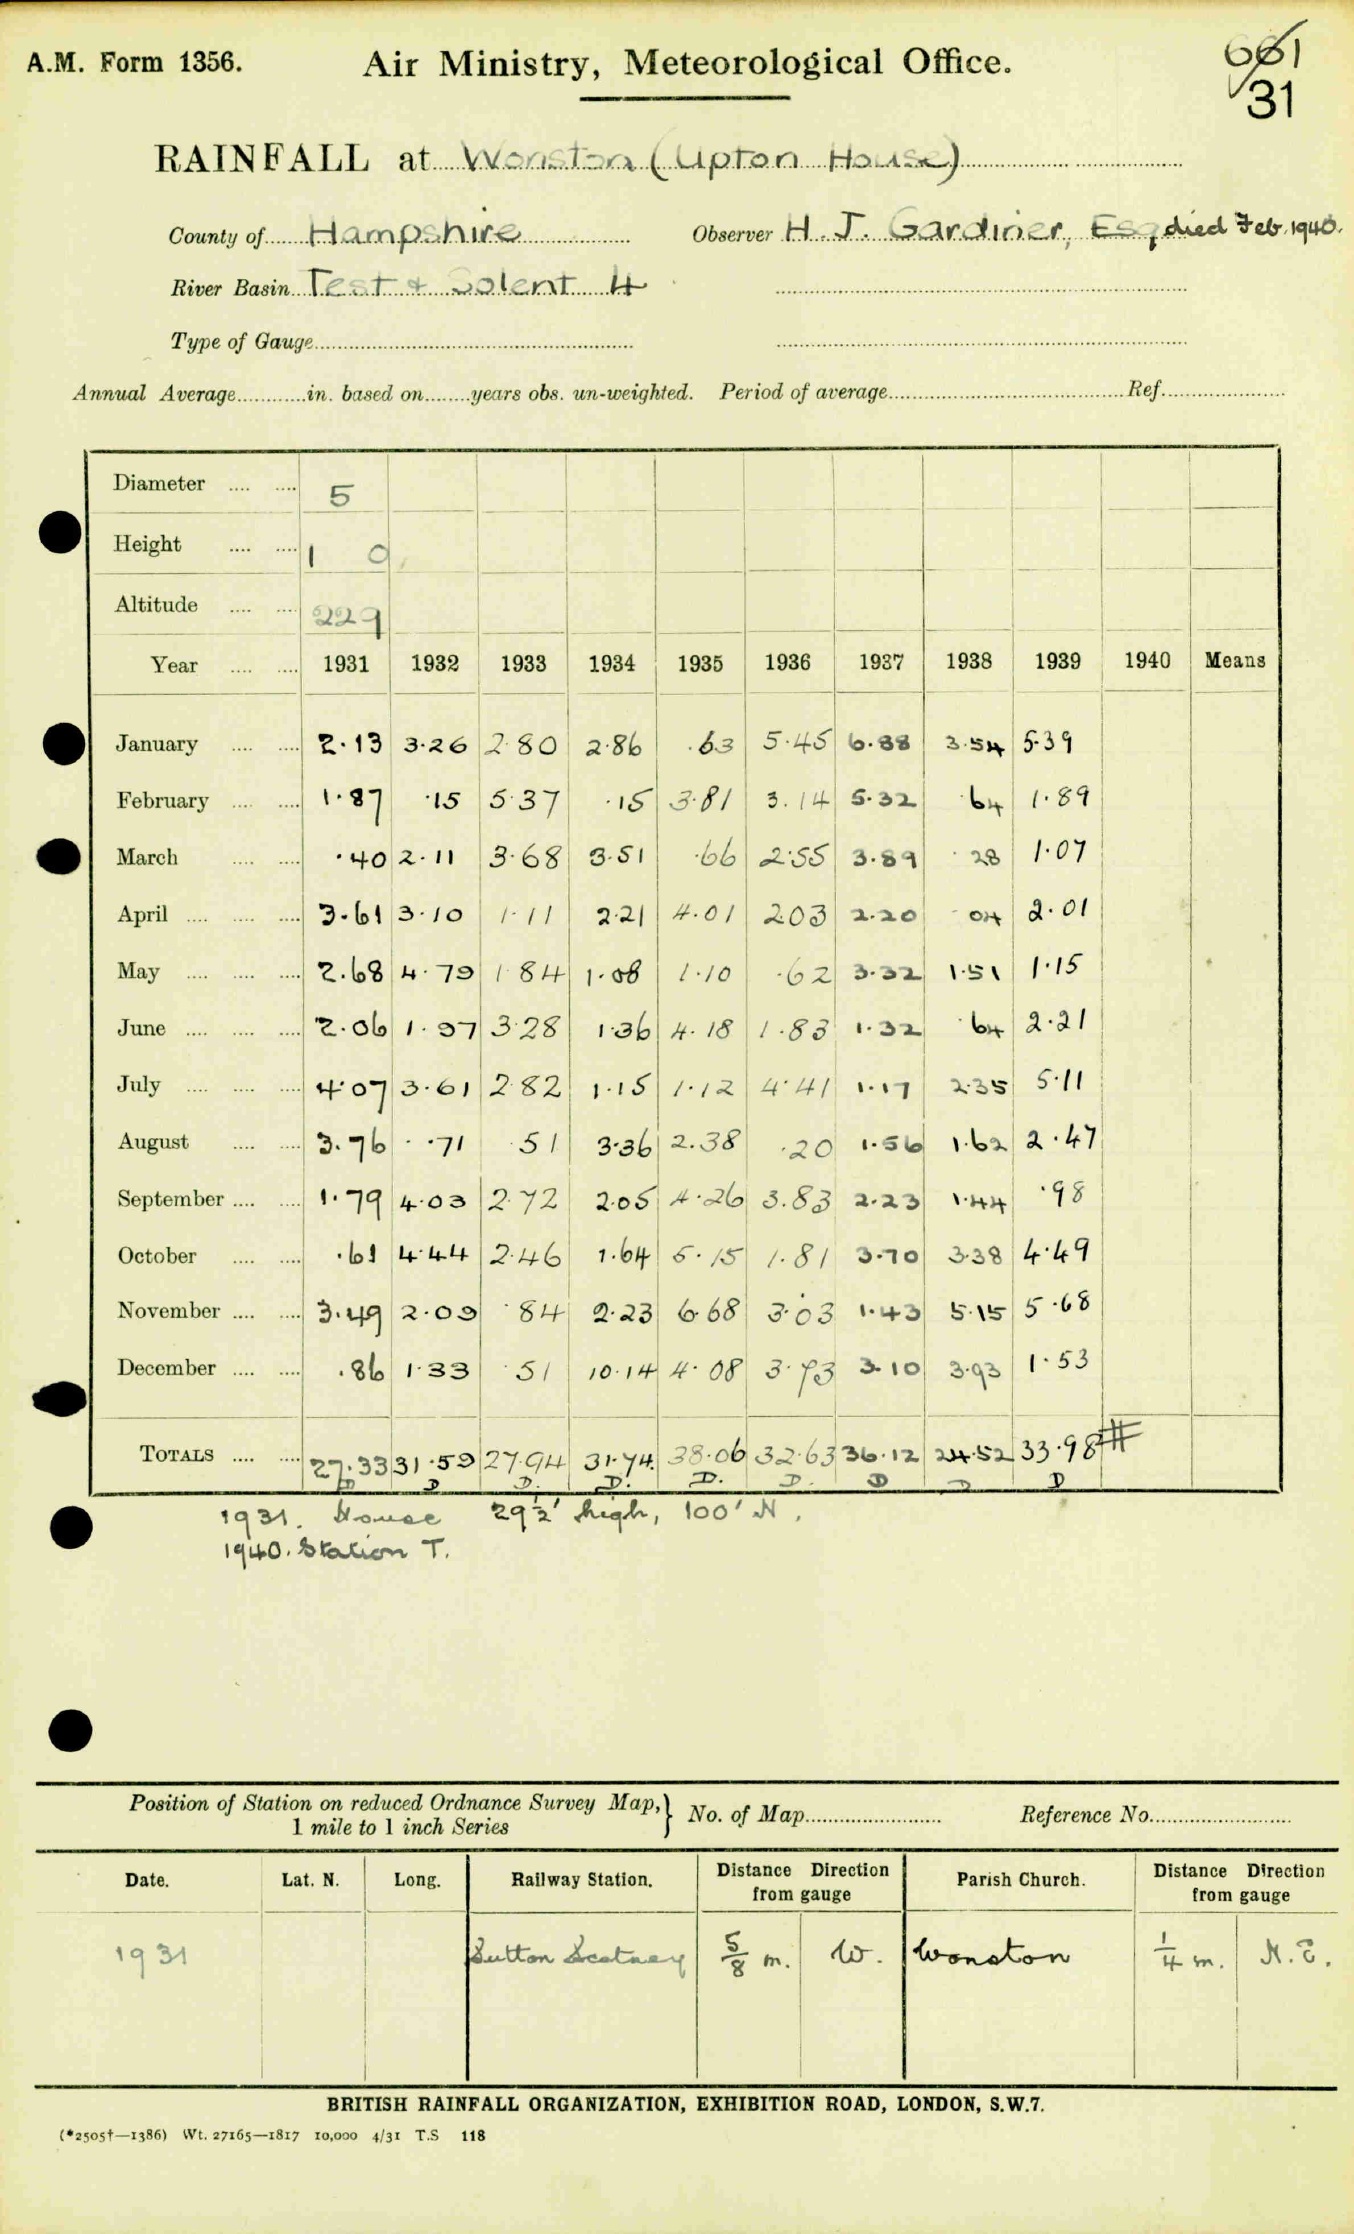 A.M. Form 1356. Air Ministry, Meteorological Office. 661
31
RAINFALL at Wonston (Upton House)
County of Hampshire Observer H. J. Gardiner, Esq died Feb. 1940.
River Basin Test & Solent 4
Type of Gauge
Annual Average in. based on years obs. un-weighted. Period of average Ref.
Diameter 5
Height 1 0
Altitude 229
Year 1931 1932 1933 1934 1935 1936 1937 1938 1939 1940 Means
January 2.13 3.26 2.80 2.86 .63 5.45 6.88 3.54 5.39
February 1.87 .15 5.37 .15 3.81 3.14 5.32 .64 1.89
March .40 2.11 3.68 3.51 .66 2.55 3.89 .28 1.07
April 3.61 3.10 1.11 2.21 4.01 2.03 2.20 .04 2.01
May 2.68 4.79 1.84 1.08 1.10 .62 3.32 1.51 1.15
June 2.06 1.97 3.28 1.36 4.18 1.83 1.32 .64 2.21
July 4.07 3.61 2.82 1.15 1.12 4.41 1.17 2.35 5.11
August 3.76 .71 .51 3.36 2.38 .20 1.56 1.62 2.47
September 1.79 4.03 2.72 2.05 4.26 3.83 2.23 1.44 .98
October .61 4.44 2.46 1.64 5.15 1.81 3.70 3.38 4.49
November 3.49 2.09 .84 2.23 6.68 3.03 1.43 5.15 5.68
December .86 1.33 .51 10.14 4.08 3.73 3.10 3.93 1.53
TOTALS 27.33 31.59 27.94 31.74 38.06 32.63 36.12 24.52 33.98 #
D D D. D. D. D. D D D
1931. House 29½' high, 100' N.
1940. Station T.
Position of Station on reduced Ordnance Survey Map, } No. of Map Reference No.
1 mile to 1 inch Series
Date. Lat. N. Long. Railway Station. Distance Direction from gauge Parish Church. Distance Direction from gauge
1931 Sutton Scotney 5/8 m. W. Wonston 1/4 m. N.E.
BRITISH RAINFALL ORGANIZATION, EXHIBITION ROAD, LONDON, S.W.7.
(*2505†—1386) Wt. 27165—1817 10,000 4/31 T.S 118